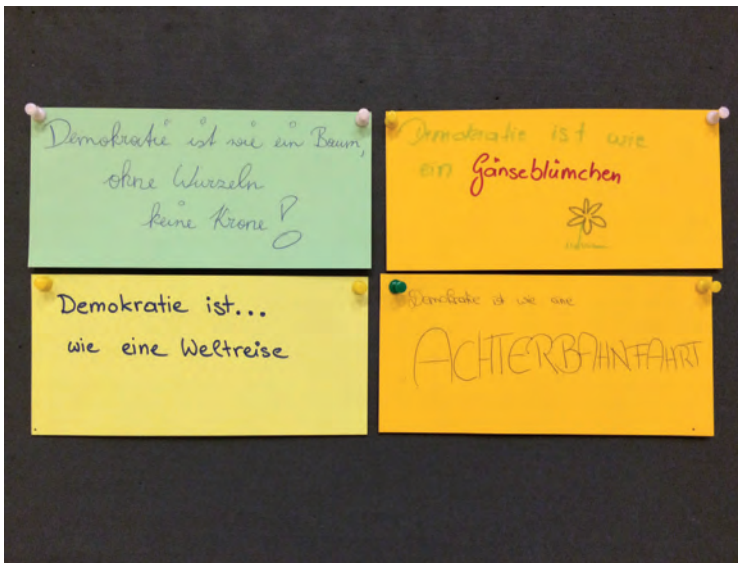 Demokratie ist wie ein Baum,
ohne Wurzeln
keine Krone!
Demokratie ist wie
ein Gänseblümchen
Demokratie ist...
wie eine Weltreise
Demokratie ist wie eine
ACHTERBAHNFAHRT